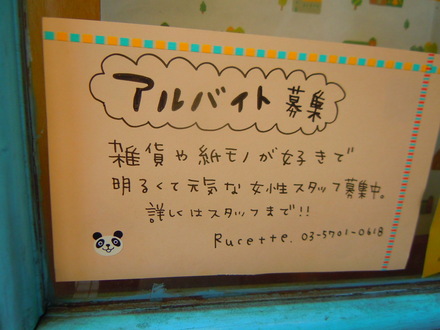 アルバイト募集
雑貨や紙モノが好きで
明るくて元気な女性スタッフ募集中。
詳しくはスタッフまで!!
Rucette. 03-5701-0618